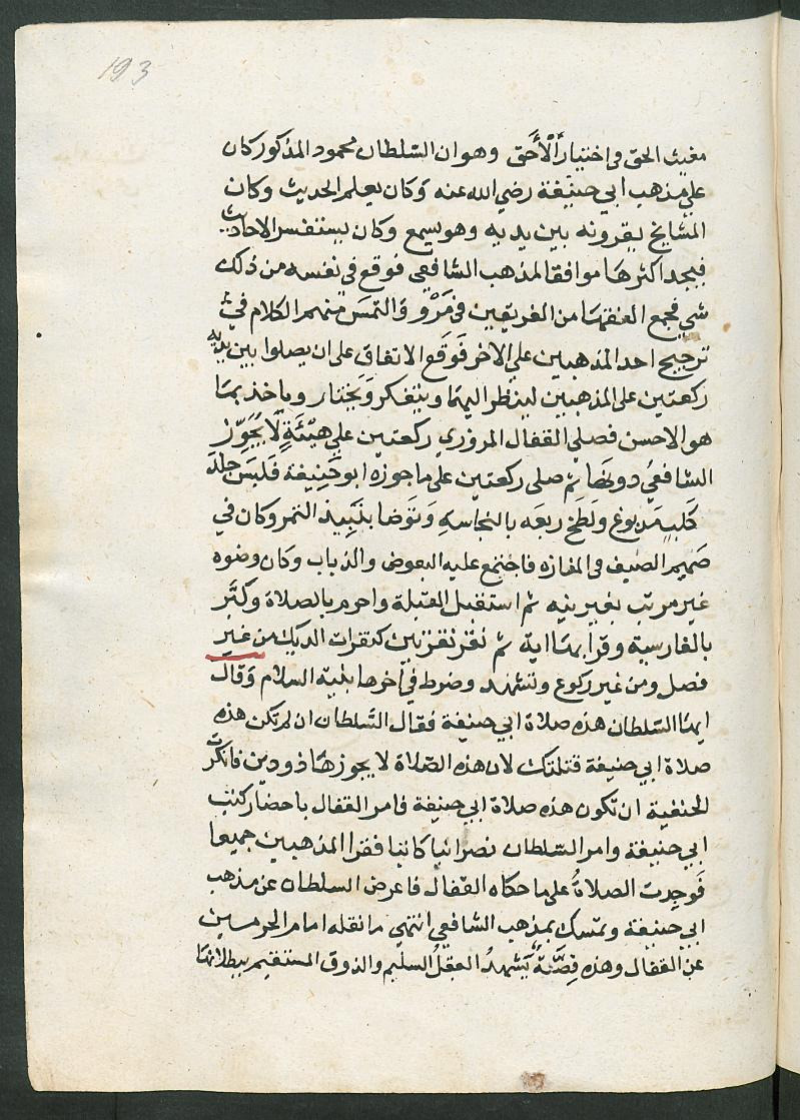 193
مغيث الحق في اختيار الأحق وهو ان السلطان محمود المذكور كان
علي مذهب ابي حنيفة رضي الله عنه وكان يعلم الحديث وكان
المشايخ يقرونه بين يديه وهو يسمع وكان يستفسر الاحاديث
فيجد اكثرها موافقا لمذهب الشافعي فوقع في نفسه من ذلك
شي فجمع الفقها من الفريقين في مَرْو والتمس منهم الكلام في
ترجيح احد المذهبين علي الاخر فوقع الاتفاق علي ان يصلوا بين يديه
ركعتين علي المذهبين لينظر اليها ويتفكر ويختار وياخذ بما
هو الاحسن فصلي القفال المروزي ركعتين علي هيئةٍ لا يُجَوِّز
الشافعيُ دونها ثم صلي ركعتين علي ما جوزه ابو حنيفة فلبس جلد
كلب مدبوغ ولطخ ربعه بالنجاسه وتوضا بنبيذ التمر وكان في
صميم الصيف في المفازه فاجتمع عليه البعوض والذباب وكان وضوه
غير مرتب بغير نيه ثم استقبل القبلة واحرم بالصلاة وكبَّر
بالفارسية وقرا بها اية ثم نقر نقرتين كنقرات الديك من غير
فصل ومن غير ركوع وتشهد وضرط في اخرها بنية السلام وقال
ايها السلطان هذه صلاة ابي حنيفة فقال السلطان ان لم تكن هذه
صلاة ابي حنيفة قتلتك لان هذه الصلاة لا يجوزها ذو دين فانكرت
الحنفية ان تكون هذه صلاة ابي حنيفة فامر القفال باحضار كتب
ابي حنيفة وامر السلطان نصرانيا كاتبا فقرا المذهبين جميعا
فوجدت الصلاةُ علي ما حكاه القفال فاعرض السلطان عن مذهب
ابي حنيفة وتمسك بمذهب الشافعي انتهي ما نقله امام الحرمين
عن القفال وهذه قصَّةٌ يشهدُ العقلُ السليم والذوق المستقيم ببطلانها